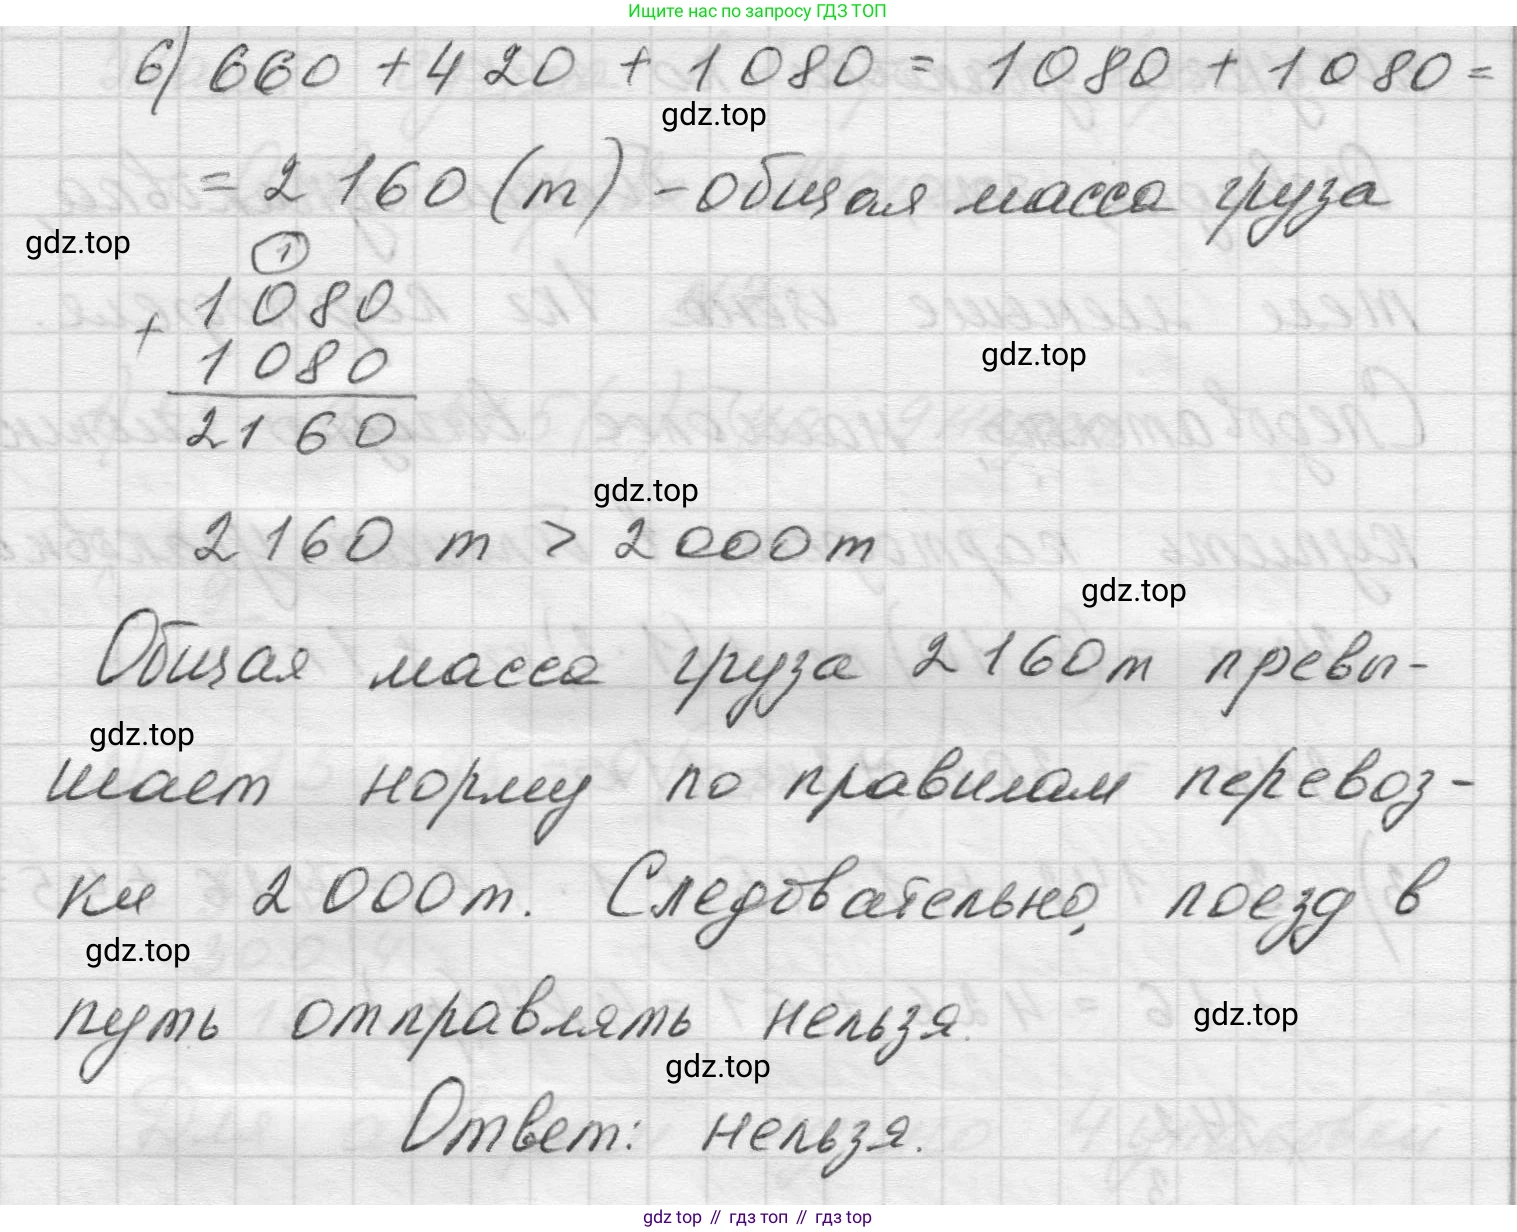 Ищите нас по запросу ГДЗ ТОП
6) 660 + 420 + 1080 = 1080 + 1080 =
gdz.top
= 2160 (т) - общая масса груза
gdz.top
1
1080
+
1080
gdz.top
2160
gdz.top
2160 т > 2000 т
gdz.top
Общая масса груза 2160 т превы-
gdz.top
шает норму по правилам перевоз-
ки 2000 т. Следовательно, поезд в
gdz.top
путь отправлять нельзя.
gdz.top
gdz.top
Ответ: нельзя.
gdz top // гдз топ // гдз top